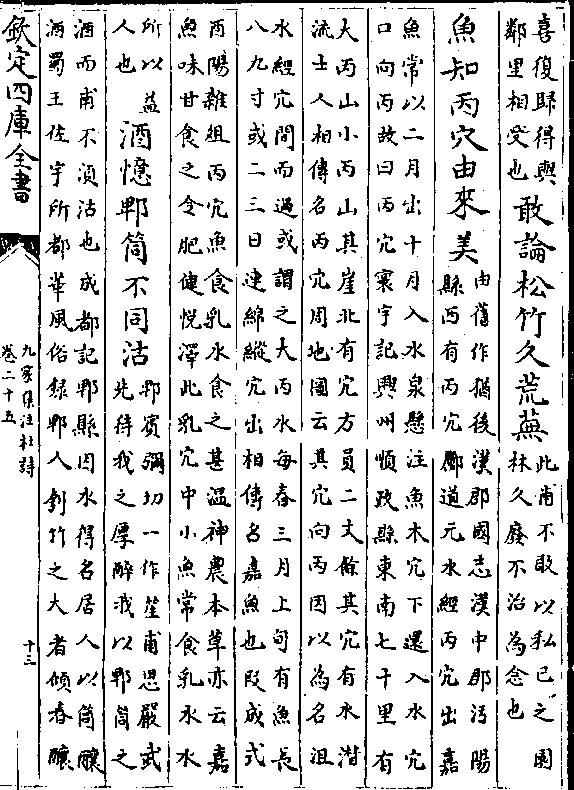 喜復歸得與
鄰里相受也
敢論松竹久荒蕪
此甫不敢以私已之園
林久廢不治為念也
魚知丙穴由來美
由舊作猶後漢郡國志漢中郡沔陽
縣西有丙穴酈道元水經丙穴出嘉
魚常以二月出十月入水泉懸注魚木穴下還入水穴
口向丙故曰丙穴寰宇記興州順政縣東南七十里有
大丙山小丙山其崖北有穴方員二丈餘其穴有水潛
流士人相傳名丙穴周地圖云其穴向丙因以為名沮
水經穴間而過或謂之大丙水每春三月上旬有魚長
八九寸或二三日連綿縱穴出相傳名嘉魚也段成式
酉陽雜俎丙穴魚食乳水食之甚溫神農本草亦云嘉
魚味甘食之令肥健悅澤此乳穴中小魚常食乳水水
所以益
人也
酒憶郫筒不同沽
郫賓彌切一作笙甫思嚴武
先待我之厚醉我以郫筒之
酒而甫不湏沽也成都記郫縣因水得名居人以筒釀
酒蜀王佐宇所都華風俗録郫人刳竹之大者傾春釀
欽定四庫全書
九家集注杜詩
卷二十五
十三